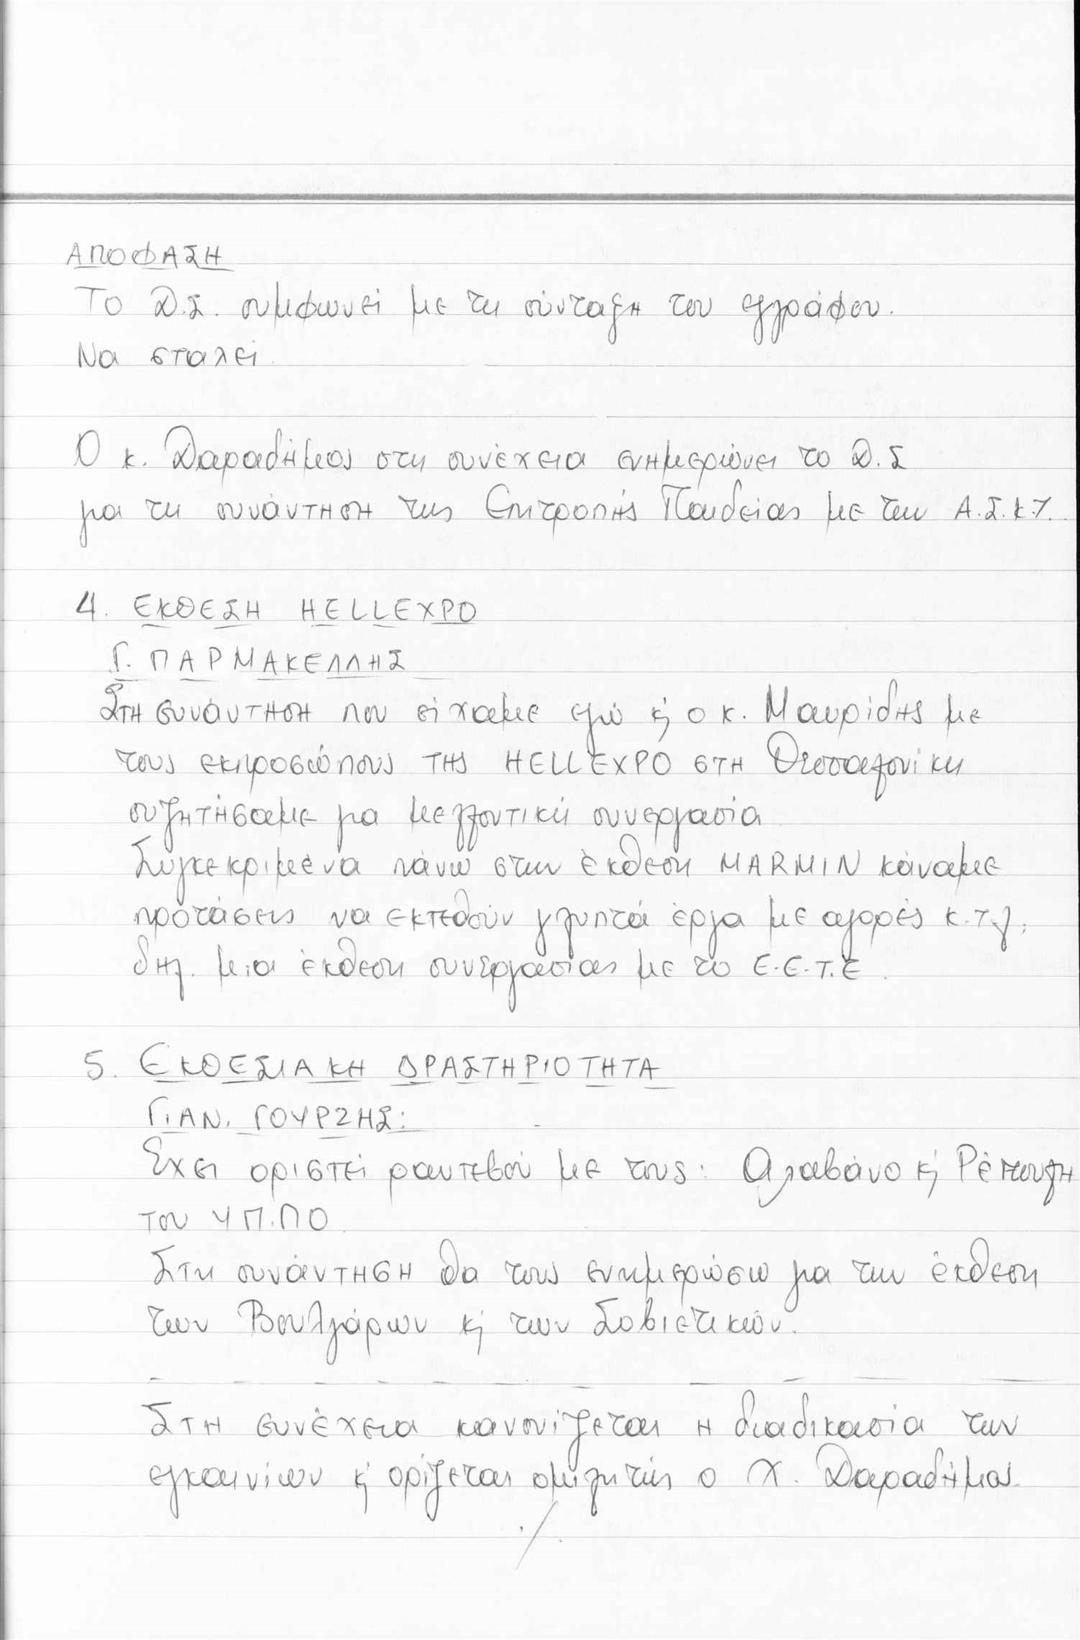 ΑΠΟΦΑΣΗ
Το Δ.Σ. συμφωνεί με τη σύνταξη του εγγράφου.
Να σταλεί.
Ο κ. Δαραδήμος στη συνέχεια ενημερώνει το Δ.Σ
για τη συνάντηση της Επιτροπής Παιδείας με την Α.Σ.Κ.Τ.
4. ΕΚΘΕΣΗ HELLEXPO
Γ. ΠΑΡΜΑΚΕΛΛΗΣ
Στη συνάντηση που είχαμε εγώ κ' ο κ. Μαυρίδης με
τους εκπροσώπους της HELLEXPO στη Θεσσαλονίκη
συζητήσαμε για μελλοντική συνεργασία
Συγκεκριμένα πάνω στην έκθεση MARMIN κάναμε
προτάσεις να εκτεθούν γλυπτά έργα με αγορές κ.τ.λ.
δηλ. μια έκθεση συνεργασίας με το Ε.Ε.Τ.Ε.
5. ΕΚΘΕΣΙΑΚΗ ΔΡΑΣΤΗΡΙΟΤΗΤΑ
ΓΙΑΝ. ΓΟΥΡΖΗΣ:
Έχει οριστεί ραντεβού με τους: Αλαβάνο κ'
του ΥΠ.ΠΟ
Στη συνάντηση θα τους ενημερώσω για την έκθεση
των Βουλγάρων κ' των Σοβιετικών.
Στη συνέχεια κανονίζεται η διαδικασία των
εγκαινίων κ' ορίζεται ομιλητής ο Χ. Δαραδήμος
./